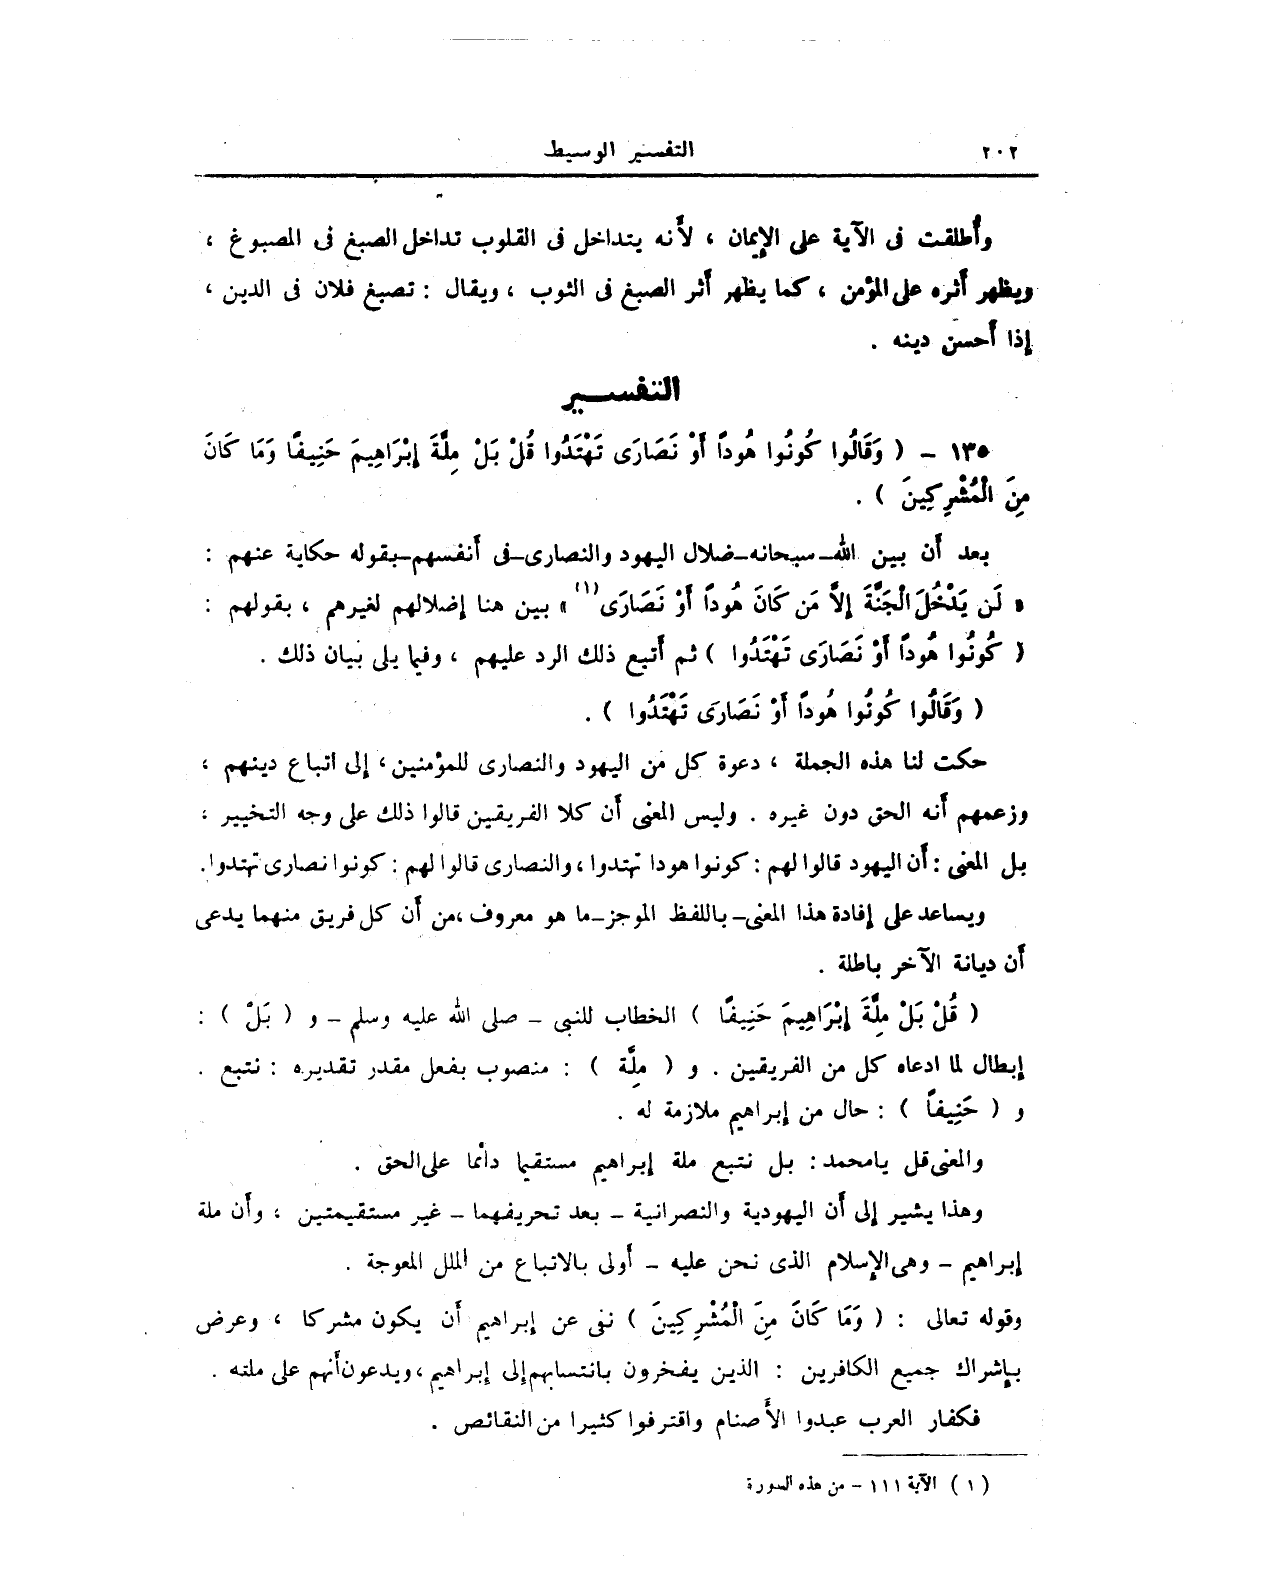 ٢٠٢
التفسير الوسيط
وأُطلقت فى الآية على الإيمان ، لأَنه يتداخل فى القلوب تداخل الصبغ فى المصبوغ ،
ويظهر أَثره على المؤمن ، كما يظهر أَثر الصبغ فى الثوب ، ويقال : تصبغ فلان فى الدين ،
إذا أَحسن دينه .
التفســير
١٣٥ – ( وَقَالُوا كُونُوا هُوداً أَوْ نَصَارَى تَهْتَدُوا قُلْ بَلْ مِلَّةَ إِبْرَاهِيمَ حَنِيفًا وَمَا كَانَ
مِنَ الْمُشْرِكِينَ ) .
بعد أَن بين الله–سبحانه–ضلال اليهود والنصارى–فى أَنفسهم–بقوله حكاية عنهم :
« لَن يَدْخُلَ الْجَنَّةَ إِلاَّ مَن كَانَ هُوداً أَوْ نَصَارَى(١) » بين هنا إضلالهم لغيرهم ، بقولهم :
( كُونُوا هُوداً أَوْ نَصَارَى تَهْتَدُوا ) ثم أَتبع ذلك الرد عليهم ، وفيما يلى بيان ذلك .
( وَقَالُوا كُونُوا هُوداً أَوْ نَصَارَى تَهْتَدُوا ) .
حكت لنا هذه الجملة ، دعوة كل من اليهود والنصارى للمؤمنين ، إلى اتباع دينهم ،
وزعمهم أَنه الحق دون غيره . وليس المعنى أَن كلا الفريقين قالوا ذلك على وجه التخيير ،
بل المعنى : أَن اليهود قالوا لهم : كونوا هودا تهتدوا ، والنصارى قالوا لهم : كونوا نصارى تهتدوا .
ويساعد على إفادة هذا المعنى–باللفظ الموجز–ما هو معروف ،من أَن كل فريق منهما يدعى
أَن ديانة الآخر باطلة .
( قُلْ بَلْ مِلَّةَ إِبْرَاهِيمَ حَنِيفًا ) الخطاب للنبى – صلى الله عليه وسلم – و ( بَلْ ) :
إبطال لما ادعاه كل من الفريقين . و ( مِلَّة ) : منصوب بفعل مقدر تقديره : نتبع .
و ( حَنِيفاً ) : حال من إبراهيم ملازمة له .
والمعنى قل يامحمد : بل نتبع ملة إبراهيم مستقيما دائما على الحق .
وهذا يشير إلى أَن اليهودية والنصرانية – بعد تحريفهما – غير مستقيمتين ، وأَن ملة
إبراهيم – وهى الإسلام الذى نحن عليه – أَولى بالاتباع من الملل المعوجة .
وقوله تعالى : ( وَمَا كَانَ مِنَ الْمُشْرِكِينَ ) نفى عن إبراهيم أَن يكون مشركا ، وعرض
بإشراك جميع الكافرين : الذين يفخرون بانتسابهم إلى إبراهيم ، ويدعون أَنهم على ملته .
فكفار العرب عبدوا الأَصنام واقترفوا كثيرا من النقائص .
( ١ ) الآية ١١١ – من هذه السورة